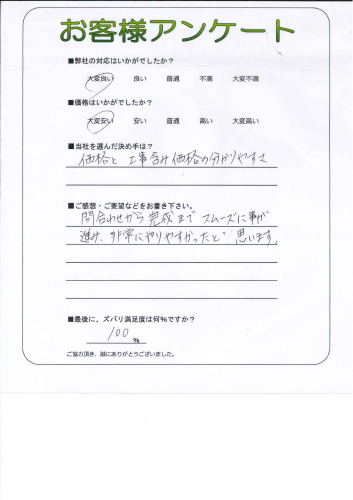 お客様アンケート
■弊社の対応はいかがでしたか?
大変良い 良い 普通 不満 大変不満
■価格はいかがでしたか?
大変安い 安い 普通 高い 大変高い
■当社を選んだ決め手は?
価格と 工事含み価格の分かりやすさ
■ご感想・ご要望などをお書き下さい。
問合わせから完成まで スムーズに事が
進み、非常にやりやすかったと 思います。
■最後に、ズバリ満足度は何%ですか?
100 %
ご協力頂き、誠にありがとうございました。